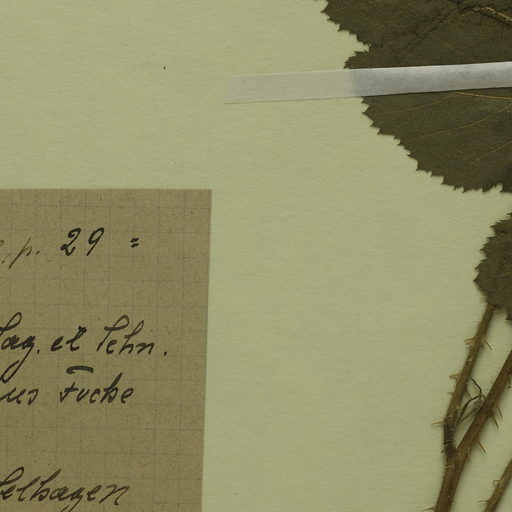 p. 29 =
ag. et Schn.
us Focke
elhagen